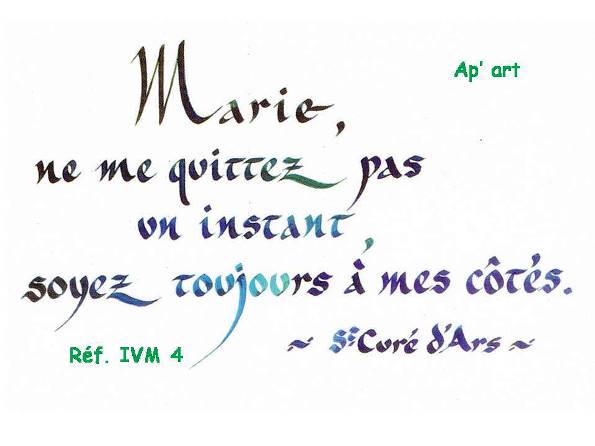 Ap' art
Marie,
ne me quittez pas
un instant,
soyez toujours à mes côtés.
~ St Curé d'Ars ~
Réf. IVM 4